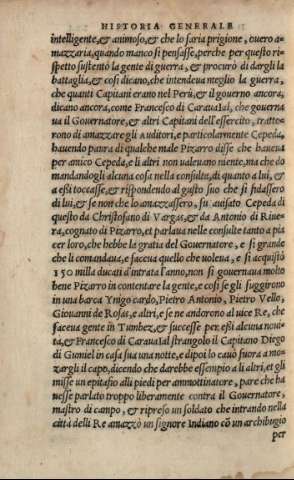 HISTORIA GENERALE
intelligente, & animoso, & che lo saria prigione, ouero a-
mazzaria, quando manco si pensasse, perche per questo ri-
spetto sustentò la gente di guerra, & procurò di dargli la
battaglia, & cosi dicano, che intendeua meglio la guerra,
che quanti Capitani erano nel Perù, & il gouerno ancora,
dicano ancora, come Francesco di Carauaial, che gouerna
ua il Gouernatore, & altri Capitani dell'essercito, tratte-
rono di amazzare gli Auditori, e particolarmente Cepeda,
hauendo paura di qualche male Pizarro disse che haueua
per amico Cepeda, e li altri non ualeuano niente, ma che do
mandandogli alcuna cosa nella consulta, di quanto a lui, &
a essi toccasse, & rispondendo al gusto suo che si fidassero
di lui, & se non che lo amazzassero, fu auisato Cepeda di
questo da Christofano di Vargas, & da Antonio di Riue-
ra, cognato di Pizarro, et parlaua nelle consulte tanto a pia
cer loro, che hebbe la gratia del Gouernatore, e si grande
che li comandaua, e faceua quello che uoleua, e si acquistò
150 mila ducati d'intrata l'anno, non si gouernaua molto
bene Pizarro in contentare la gente, e cosi se gli fuggirono
in una barca Ynigo cardo, Pietro Antonio, Pietro Vello,
Giouanni de Rosas, e altri, e se ne andorono al uice Re, che
faceua gente in Tumbez, & successe per essi alcuna noui-
ta, & Francesco di Carauaial strangolo il Capitano Diego
di Gumiel in casa sua una notte, e dipoi lo cauò fuora a moz-
zargli il capo, dicendo che darebbe essempio a li altri, et gli
misse un epitafio alli piedi per ammottinatore, pare che ha
uesse parlato troppo liberamente contra il Gouernatore,
mastro di campo, & ripreso un soldato che intrando nella
città delli Re amazzò un signore Indiano cō un archibugio
per